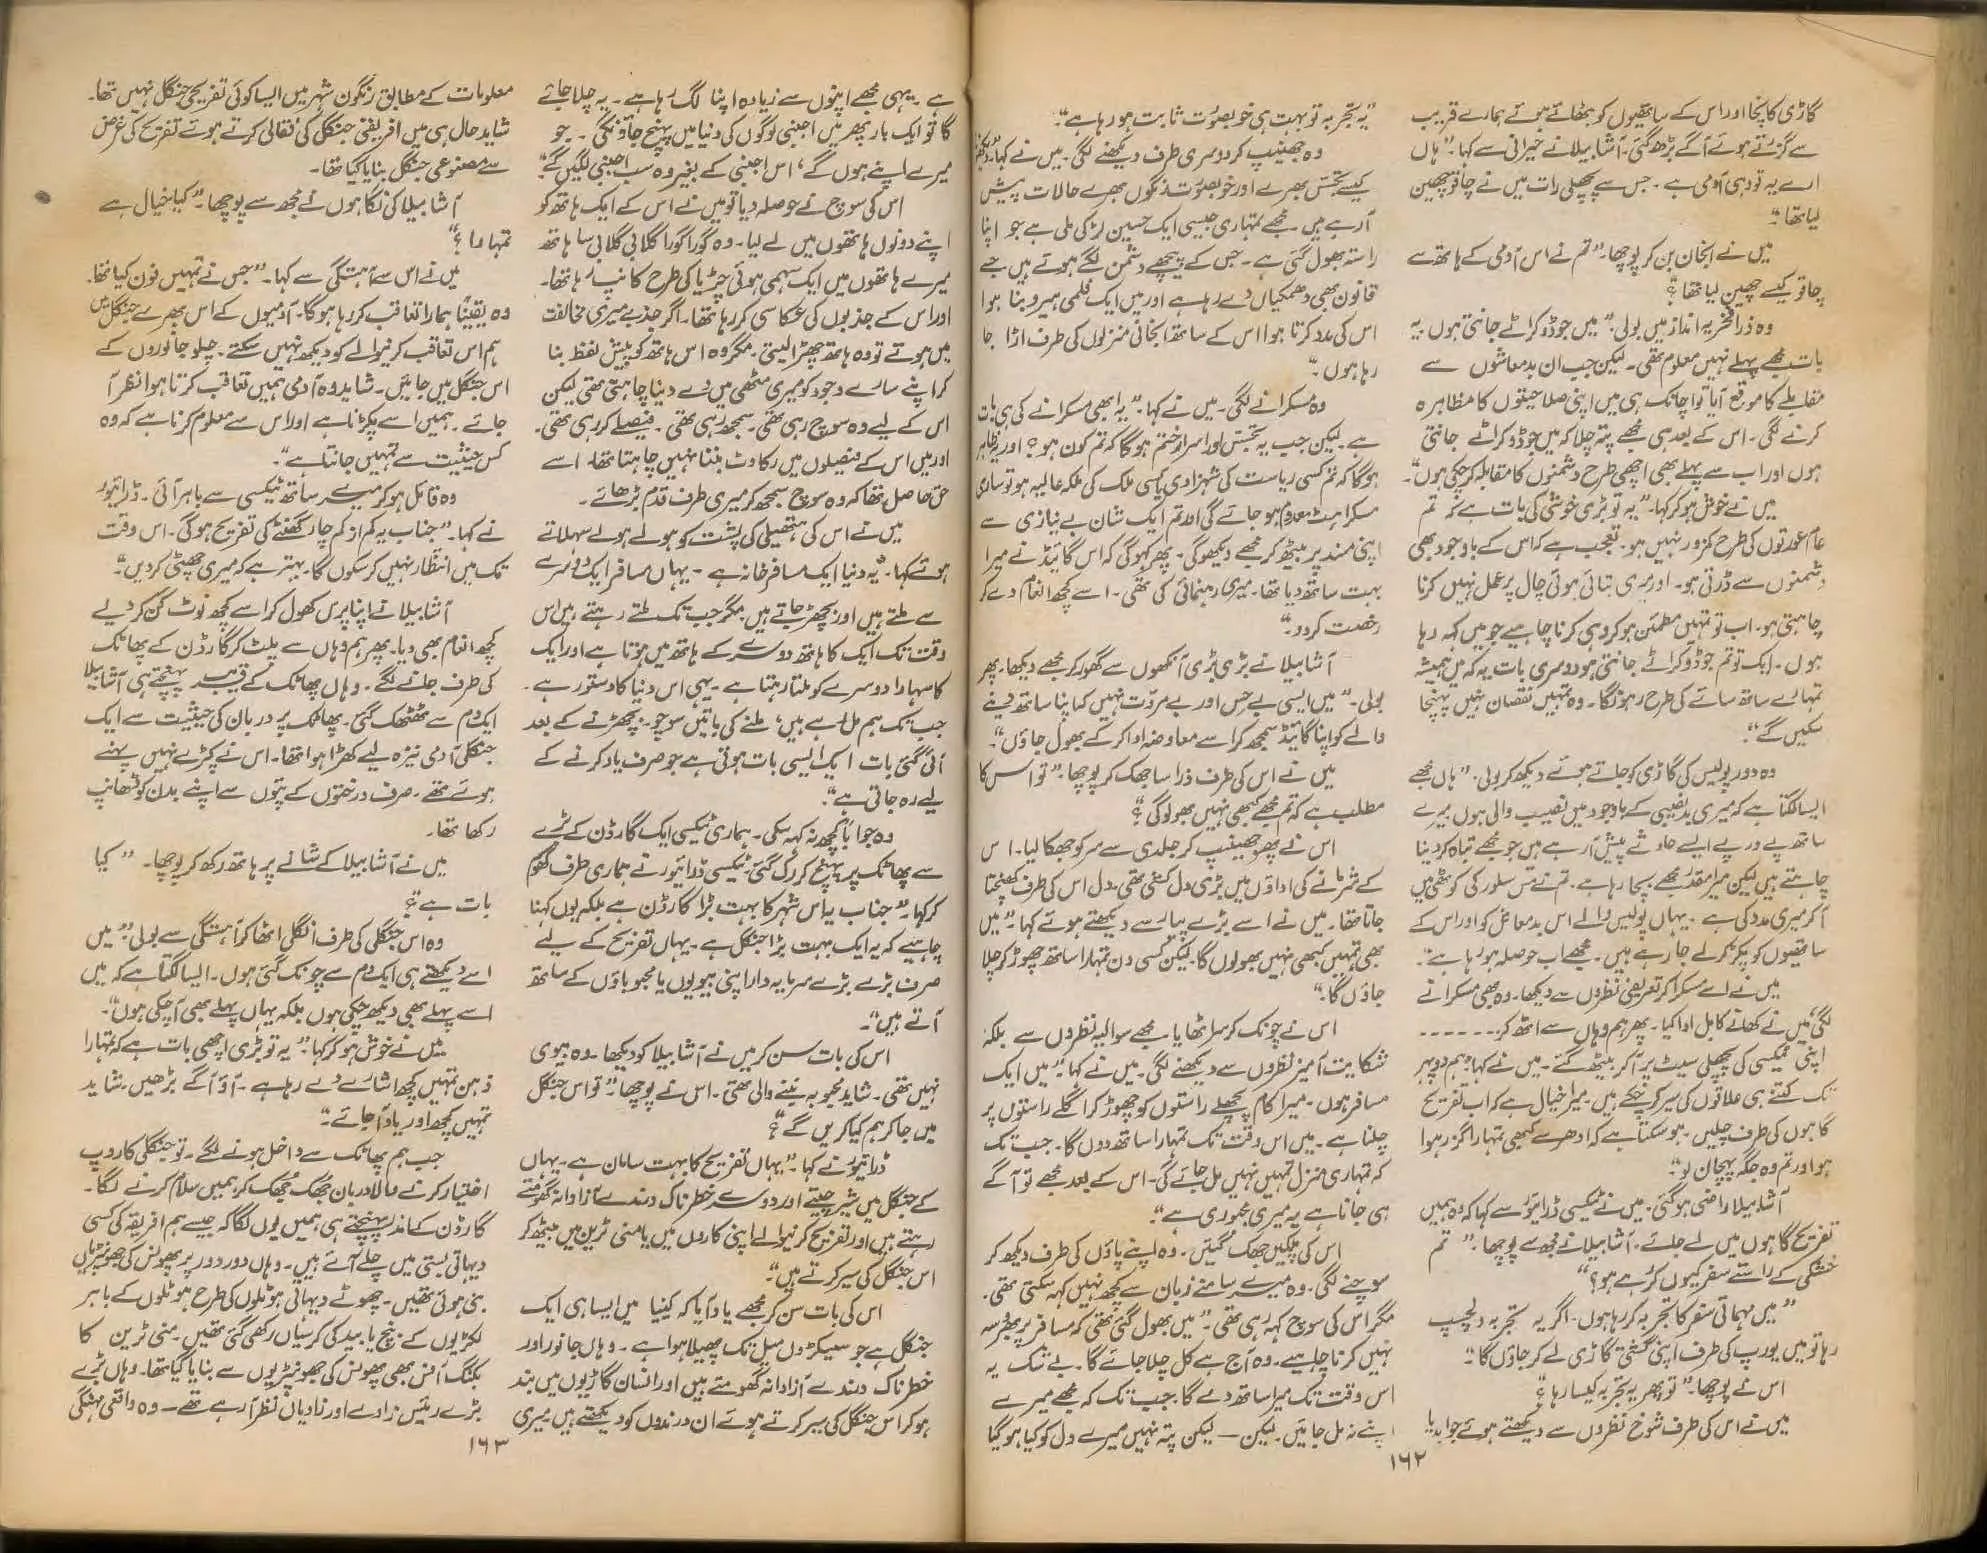 گاڑی کا پنجا اور اس کے ساتھیوں کو بٹھائے ہوئے ہمارے قریب
سے گزرتے ہوئے آگے بڑھ گئی۔ آشابیلا نے حیرانی سے کہا۔ "ہاں
ارے یہ تو وہی آدمی ہے۔ جس سے پچھلی رات میں نے چاقو چھین
لیا تھا"۔
میں نے انجان بن کر پوچھا۔ "تم نے اس آدمی کے ہاتھ سے
چاقو کیسے چھین لیا تھا؟"
وہ ذرا فخریہ انداز میں بولی۔ "میں جوڈو کراٹے جانتی ہوں یہ
بات مجھے پہلے نہیں معلوم تھی۔ لیکن جب ان بدمعاشوں سے
مقابلے کا موقع آیا تو اچانک ہی میں اپنی صلاحیتوں کا مظاہرہ
کرنے لگی۔ اس کے بعد ہی مجھے پتہ چلا کہ میں جوڈو کراٹے جانتی
ہوں اور اب سے پہلے بھی اچھی طرح دشمنوں کا مقابلہ کر چکی ہوں"۔
میں نے خوش ہو کر کہا۔ "یہ تو بڑی خوشی کی بات ہے کہ تم
عام عورتوں کی طرح کمزور نہیں ہو۔ تعجب ہے کہ اس کے باوجود بھی
دشمنوں سے ڈرتی ہو۔ اور میری بتائی ہوئی چال پر عمل نہیں کرنا
چاہتی ہو۔ اب تو تمہیں مطمئن ہو کر وہی کرنا چاہیے جو میں کہہ رہا
ہوں۔ ایک تو تم جوڈو کراٹے جانتی ہو دوسری بات یہ کہ میں ہمیشہ
تمہارے ساتھ سائے کی طرح رہوں گا۔ وہ تمہیں نقصان نہیں پہنچا
سکیں گے"۔
وہ دور پولیس کی گاڑی کو جاتے ہوئے دیکھ کر بولی۔ "ہاں مجھے
ایسا لگتا ہے کہ میری بدنصیبی کے باوجود میں نصیب والی ہوں میرے
ساتھ پے در پے ایسے حادثے پیش آ رہے ہیں جو مجھے تباہ کر دینا
چاہتے ہیں لیکن میرا مقدر مجھے بچا رہا ہے۔ تم نے مس سلور کی کوٹھی میں
آ کر میری مدد کی ہے۔ یہاں پولیس والے اس بدمعاش کو اور اس کے
ساتھیوں کو پکڑ کر لے جا رہے ہیں۔ مجھے اب حوصلہ ہو رہا ہے"۔
میں نے اسے مسکرا کر تعریفی نظروں سے دیکھا۔ وہ بھی مسکرانے
لگی میں نے کھانے کا بل ادا کیا۔ پھر ہم وہاں سے اٹھ کر ۔۔۔۔۔۔
اپنی ٹیکسی کی پچھلی سیٹ پر آ کر بیٹھ گئے۔ میں نے کہا "ہم دوپہر
تک کتنے ہی علاقوں کی سیر کر چکے ہیں۔ میرا خیال ہے کہ اب تفریح
گاہوں کی طرف چلیں۔ ہو سکتا ہے کہ ادھر سے کبھی تمہارا گزر ہوا
ہو اور تم وہ جگہ پہچان لو"۔
آشابیلا راضی ہو گئی۔ میں نے ٹیکسی ڈرائیور سے کہا کہ وہ ہمیں
تفریح گاہوں میں لے جائے۔ آشابیلا نے مجھ سے پوچھا۔ "تم
خشکی کے راستے سفر کیوں کر رہے ہو؟"
"میں مہماتی سفر کا تجربہ کر رہا ہوں۔ اگر یہ تجربہ دلچسپ
رہا تو میں یورپ کی طرف اپنی گشتی گاڑی لے کر جاؤں گا"۔
اس نے پوچھا۔ "تو پھر یہ تجربہ کیسا رہا؟"
میں نے اس کی طرف شوخ نظروں سے دیکھتے ہوئے جواب دیا
"یہ تجربہ تو بہت ہی خوبصورت ثابت ہو رہا ہے"۔
وہ جھینپ کر دوسری طرف دیکھنے لگی۔ میں نے کہا۔ "دیکھو
کیسے تجسس بھرے اور خوبصورت رنگوں بھرے حالات پیش
آ رہے ہیں۔ مجھے تمہاری جیسی ایک حسین لڑکی ملی ہے جو اپنا
راستہ بھول گئی ہے۔ جس کے پیچھے دشمن لگے ہوئے ہیں جسے
قانون بھی دھمکیاں دے رہا ہے اور میں ایک فلمی ہیرو بنا ہوا
اس کی مدد کرتا ہوا اس کے ساتھ انجانی منزلوں کی طرف اڑا جا
رہا ہوں"۔
وہ مسکرانے لگی۔ میں نے کہا۔ "یہ ابھی مسکرانے کی ہی بات
ہے۔ لیکن جب یہ تجسس اور اسرار ختم ہوگا کہ تم کون ہو؟ اور یہ ظاہر
ہوگا کہ تم کسی ریاست کی شہزادی یا کسی ملک کی ملکہ عالیہ ہو تو ساری
مسکراہٹ معدوم ہو جائے گی اور تم ایک شان بے نیازی سے
اپنی مسند پر بیٹھ کر مجھے دیکھو گی۔ پھر کہو گی کہ اس گائیڈ نے میرا
بہت ساتھ دیا تھا۔ میری رہنمائی کی تھی۔ اسے کچھ انعام دے کر
رخصت کر دو"۔
آشابیلا نے بڑی بڑی آنکھوں سے گھور کر مجھے دیکھا۔ پھر
بولی۔ "میں ایسی بے حس اور بے مروت نہیں کہ اپنا ساتھ دینے
والے کو اپنا گائیڈ سمجھ کر اسے معاوضہ ادا کر کے بھول جاؤں"۔
میں نے اس کی طرف ذرا سا جھک کر پوچھا۔ "تو اس کا
مطلب ہے کہ تم مجھے کبھی نہیں بھولو گی؟"
اس نے پھر جھینپ کر جلدی سے سر کو جھکا لیا۔ اس
کے شرمانے کی اداؤں میں بڑی دل کشی تھی۔ دل اس کی طرف کھنچتا
جاتا تھا۔ میں نے اسے بڑے پیار سے دیکھتے ہوئے کہا۔ "میں
بھی تمہیں کبھی نہیں بھولوں گا۔ لیکن کسی دن تمہارا ساتھ چھوڑ کر چلا
جاؤں گا"۔
اس نے چونک کر سر اٹھایا۔ مجھے سوالیہ نظروں سے بلکہ
شکایت آمیز نظروں سے دیکھنے لگی۔ میں نے کہا۔ "میں ایک
مسافر ہوں۔ میرا کام پچھلے راستوں کو چھوڑ کر اگلے راستوں پر
چلنا ہے۔ میں اس وقت تک تمہارا ساتھ دوں گا۔ جب تک
کہ تمہاری منزل تمہیں نہیں مل جائے گی۔ اس کے بعد مجھے تو آگے
ہی جانا ہے یہ میری مجبوری ہے"۔
اس کی پلکیں جھک گئیں۔ وہ اپنے پاؤں کی طرف دیکھ کر
سوچنے لگی۔ وہ میرے سامنے زبان سے کچھ نہیں کہہ سکتی تھی۔
مگر اس کی سوچ کہہ رہی تھی۔ "میں بھول گئی تھی کہ مسافر پر بھروسہ
نہیں کرنا چاہیے۔ وہ آج ہے کل چلا جائے گا۔ بے شک یہ
اس وقت تک میرا ساتھ دے گا جب تک کہ مجھے میرے
اپنے نہ مل جائیں۔ لیکن — لیکن پتہ نہیں میرے دل کو کیا ہو گیا
۱۶۲
ہے۔ یہی مجھے اپنوں سے زیادہ اپنا لگ رہا ہے۔ یہ چلا جائے
گا تو ایک بار پھر میں اجنبی لوگوں کی دنیا میں پہنچ جاؤنگی۔ جو
میرے اپنے ہوں گے، اس اجنبی کے بغیر وہ سب اجنبی لگیں گے"
اس کی سوچ نے حوصلہ دیا تو میں نے اس کے ایک ہاتھ کو
اپنے دونوں ہاتھوں میں لے لیا۔ وہ گورا گورا گلابی گلابی سا ہاتھ
میرے ہاتھوں میں ایک سہمی ہوئی چڑیا کی طرح کانپ رہا تھا۔
اور اس کے جذبوں کی عکاسی کر رہا تھا۔ اگر جذبے میری مخالفت
میں ہوتے تو وہ ہاتھ چھڑا لیتی۔ مگر وہ اس ہاتھ کو پیش لفظ بنا
کر اپنے سارے وجود کو میری مٹھی میں دے دینا چاہتی تھی لیکن
اس کے لیے وہ سوچ رہی تھی۔ سمجھ رہی تھی۔ فیصلے کر رہی تھی۔
اور میں اس کے فیصلوں میں رکاوٹ بننا نہیں چاہتا تھا۔ اسے
حق حاصل تھا کہ وہ سوچ سمجھ کر میری طرف قدم بڑھائے۔
میں نے اس کی ہتھیلی کی پشت کو ہولے ہولے سہلاتے
ہوئے کہا۔ "یہ دنیا ایک مسافر خانہ ہے۔ یہاں مسافر ایک دوسرے
سے ملتے ہیں اور بچھڑ جاتے ہیں مگر جب تک ملتے رہتے ہیں اس
وقت تک ایک کا ہاتھ دوسرے کے ہاتھ میں ہوتا ہے اور ایک
کا سہارا دوسرے کو ملتا رہتا ہے۔ یہی اس دنیا کا دستور ہے۔
جب تک ہم مل رہے ہیں، ملنے کی باتیں سوچو۔ بچھڑنے کے بعد
آئی گئی بات ایک ایسی بات ہوتی ہے جو صرف یاد کرنے کے
لیے رہ جاتی ہے"۔
وہ جواباً کچھ نہ کہہ سکی۔ ہماری ٹیکسی ایک گارڈن کے بڑے
سے پھاٹک پر پہنچ کر رک گئی۔ ٹیکسی ڈرائیور نے ہماری طرف گھوم
کر کہا۔ "جناب یہ اس شہر کا بہت بڑا گارڈن ہے بلکہ یوں کہنا
چاہیے کہ یہ ایک بہت بڑا جنگل ہے۔ یہاں تفریح کے لیے
صرف بڑے بڑے سرمایہ دار اپنی بیویوں یا محبوباؤں کے ساتھ
آتے ہیں"۔
اس کی بات سن کر میں نے آشابیلا کو دیکھا۔ وہ بیوی
نہیں تھی۔ شاید محبوبہ بننے والی تھی۔ اس نے پوچھا۔ "تو اس جنگل
میں جا کر ہم کیا کریں گے؟"
ڈرائیور نے کہا۔ "یہاں تفریح کا بہت سامان ہے۔ یہاں
کے جنگل میں شیر، چیتے اور دوسرے خطرناک درندے آزادانہ گھومتے
رہتے ہیں اور تفریح کرنیوالے اپنی کاروں میں یا منی ٹرین میں بیٹھ کر
اس جنگل کی سیر کرتے ہیں"۔
اس کی بات سن کر مجھے یاد آیا کہ کینیا میں ایسا ہی ایک
جنگل ہے جو سیکڑوں میل تک پھیلا ہوا ہے۔ وہاں جانور اور
خطرناک درندے آزادانہ گھومتے ہیں اور انسان گاڑیوں میں بند
ہو کر اس جنگل کی سیر کرتے ہوئے ان درندوں کو دیکھتے ہیں میری
معلومات کے مطابق رنگون شہر میں ایسا کوئی تفریحی جنگل نہیں تھا۔
شاید حال ہی میں افریقی جنگل کی نقالی کرتے ہوئے تفریح کی غرض
سے مصنوعی جنگل بنایا گیا تھا۔
آشابیلا کی نگاہوں نے مجھ سے پوچھا۔ "کیا خیال ہے
تمہارا؟"
میں نے اس سے آہستگی سے کہا۔ "جس نے تمہیں فون کیا تھا
وہ یقیناً ہمارا تعاقب کر رہا ہوگا۔ آدمیوں کے اس بھرے جنگل میں
ہم اس تعاقب کرنیوالے کو دیکھ نہیں سکتے۔ چلو جانوروں کے
اس جنگل میں جائیں۔ شاید وہ آدمی ہمیں تعاقب کرتا ہوا نظر آ
جائے۔ ہمیں اسے پکڑنا ہے اور اس سے معلوم کرنا ہے کہ وہ
کس حیثیت سے تمہیں جانتا ہے"۔
وہ قائل ہو کر میرے ساتھ ٹیکسی سے باہر آئی۔ ڈرائیور
نے کہا۔ "جناب یہ کم از کم چار گھنٹے کی تفریح ہوگی۔ اس وقت
تک میں انتظار نہیں کر سکوں گا۔ بہتر ہے کہ میری چھٹی کر دیں"۔
آشابیلا نے اپنا پرس کھول کر اسے کچھ نوٹ گن کر دیے
کچھ انعام بھی دیا۔ پھر ہم وہاں سے پلٹ کر گارڈن کے پھاٹک
کی طرف جانے لگے۔ وہاں پھاٹک کے قریب پہنچتے ہی آشابیلا
ایک دم سے ٹھٹھک گئی۔ پھاٹک پر دربان کی حیثیت سے ایک
جنگلی آدمی نیزہ لیے کھڑا ہوا تھا۔ اس نے کپڑے نہیں پہنے
ہوئے تھے۔ صرف درختوں کے پتوں سے اپنے بدن کو ڈھانپ
رکھا تھا۔
میں نے آشابیلا کے شانے پر ہاتھ رکھ کر پوچھا۔ "کیا
بات ہے؟"
وہ اس جنگلی کی طرف انگلی اٹھا کر آہستگی سے بولی۔ "میں
اسے دیکھتے ہی ایک دم سے چونک گئی ہوں۔ ایسا لگتا ہے کہ میں
اسے پہلے بھی دیکھ چکی ہوں بلکہ یہاں پہلے بھی آ چکی ہوں"۔
میں نے خوش ہو کر کہا۔ "یہ تو بڑی اچھی بات ہے کہ تمہارا
ذہن تمہیں کچھ اشارے دے رہا ہے۔ آؤ آگے بڑھیں۔ شاید
تمہیں کچھ اور یاد آ جائے"۔
جب ہم پھاٹک سے داخل ہونے لگے۔ تو جنگلی کا روپ
اختیار کرنے والا دربان جھک جھک کر ہمیں سلام کرنے لگا۔
گارڈن کے اندر پہنچتے ہی ہمیں یوں لگا کہ جیسے ہم افریقہ کی کسی
دیہاتی بستی میں چلے آئے ہیں۔ وہاں دور دور پر پھوس کی جھونپڑیاں
بنی ہوئی تھیں۔ چھوٹے دیہاتی ہوٹلوں کی طرح ہوٹلوں کے باہر
لکڑیوں کے بنچ یا بید کی کرسیاں رکھی گئی تھیں۔ منی ٹرین کا
بکنگ آفس بھی پھوس کی جھونپڑیوں سے بنایا گیا تھا۔ وہاں بڑے
بڑے رئیس زادے اور زادیاں نظر آ رہے تھے۔ وہ واقعی مہنگی
۱۶۳